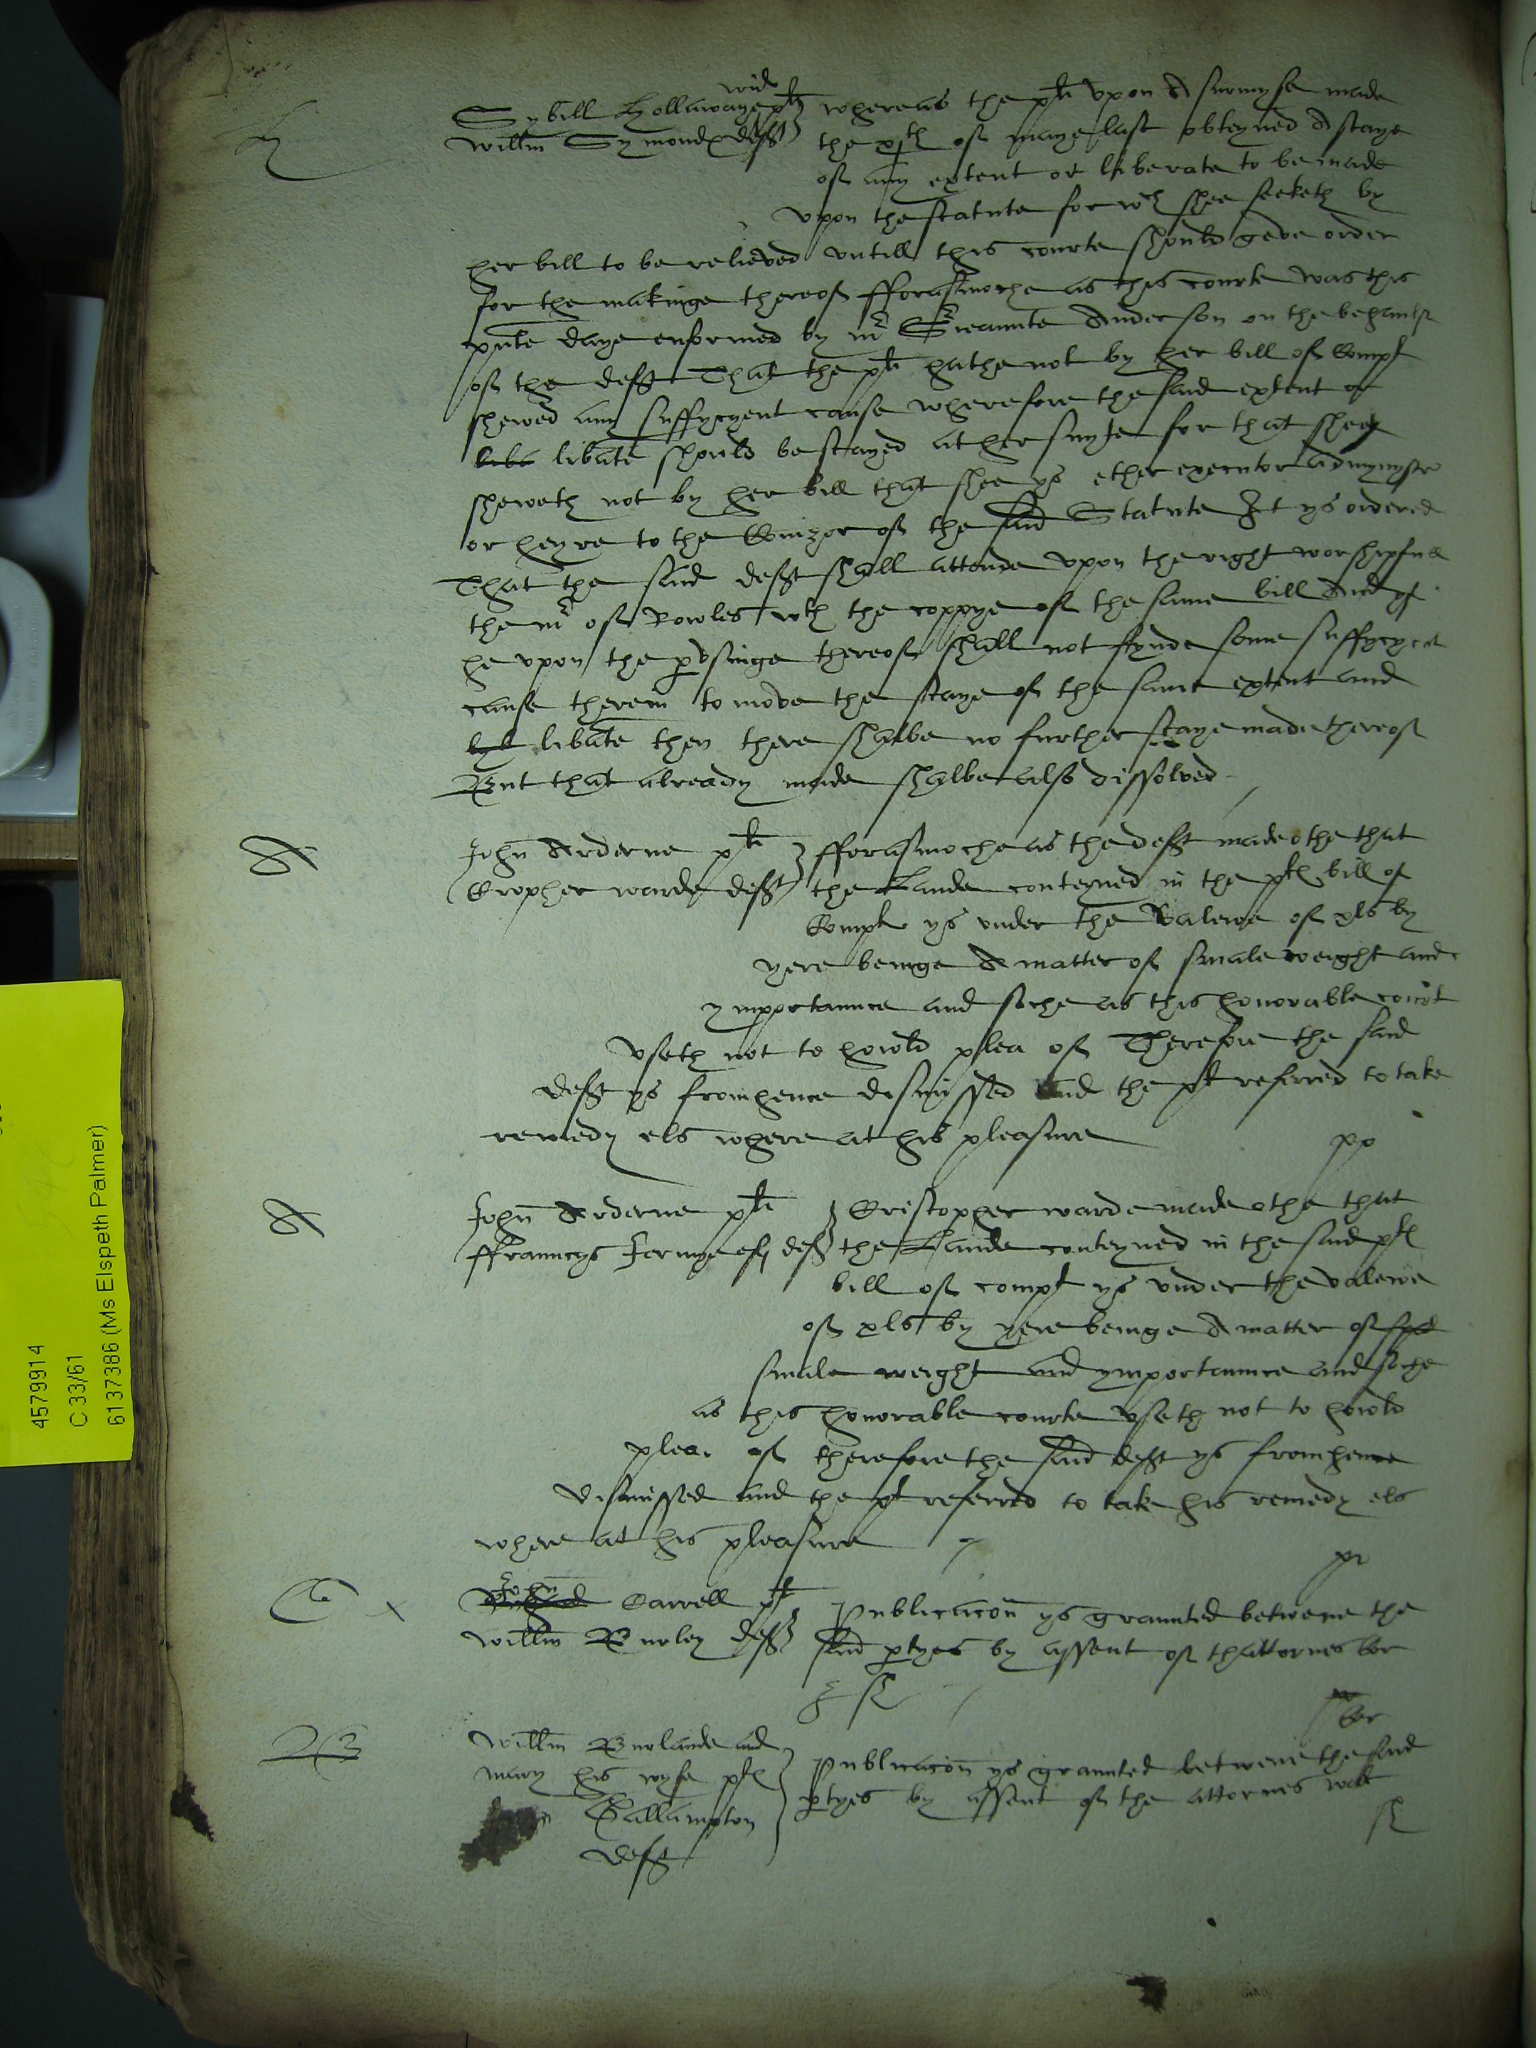 wid
Sybill Hollawaye plt whereas the plt upon A surmyse made
Willm Symondes deft the xjth of maye last obteyned A staye
of any extent or liberate to be made
upon the statute for wch shee seeketh by
her bill to be relieved untill this courte should geve order
for the makinge thereof fforasmoche as this courte was this
pnte daye enformed by mr Sricaunte Anderson on the behaulf
of the deft That the plt hathe not by her bill of Complt
shewed any suffycyent cause wherefore the said extent or
libate should be stayed at her suyte for that shee
sheweth not by her bill that shee ys ether executor admynystr
or heyre to the Conizor of the said Statute It ys ordered
That the said deft shall attende upon the right worshipfull
the mr of Rowles wth the coppye of the same bill And yf
he upon the pvsinge thereof shall not fynde some suffycyent
cause therein to move the staye of the same extent and
libate then there shalbe no further staye made thereof
But that already made shalbe also dissolved
A
John Arderne plt fforasmoche as the deft made othe that
Cropher warde deft the Lande conteyned in the plts bill of
Complt ys under the valewe of xls by
yere beinge A matter of smale weight and
ymportaunce and soche as this honorable court
useth not to howld plea of Therefore the said
deft ys from hence dismyssed And the plt referred to take
remedy els where at his pleasure
pp
A
John Arderne plt Cristopher warde made othe that
ffrauncys Jermye esq deft the Lande conteyned in the said plts
bill of complt ys under the valewe
of xls by yere beinge A matter of
smale weight and ymportaunce and soche
as this honorable courte useth not to howld
plea of therefore the said deft ys from hence
dismissed and the plt referred to take his remedy els
where at his pleasure
pp
C x
John
Carrell plt Publicacon ys graunted betwene the
Willm Burley deft said ptyes by assent of thattornes Cor
Cor
Willm Burlande and
mary his wyfe plts Publicacon ys graunted betwene the said
Hallampton ptyes by assent of the attornes
deft
4579914
C 33/61
6137386 (Ms Elspeth Palmer)